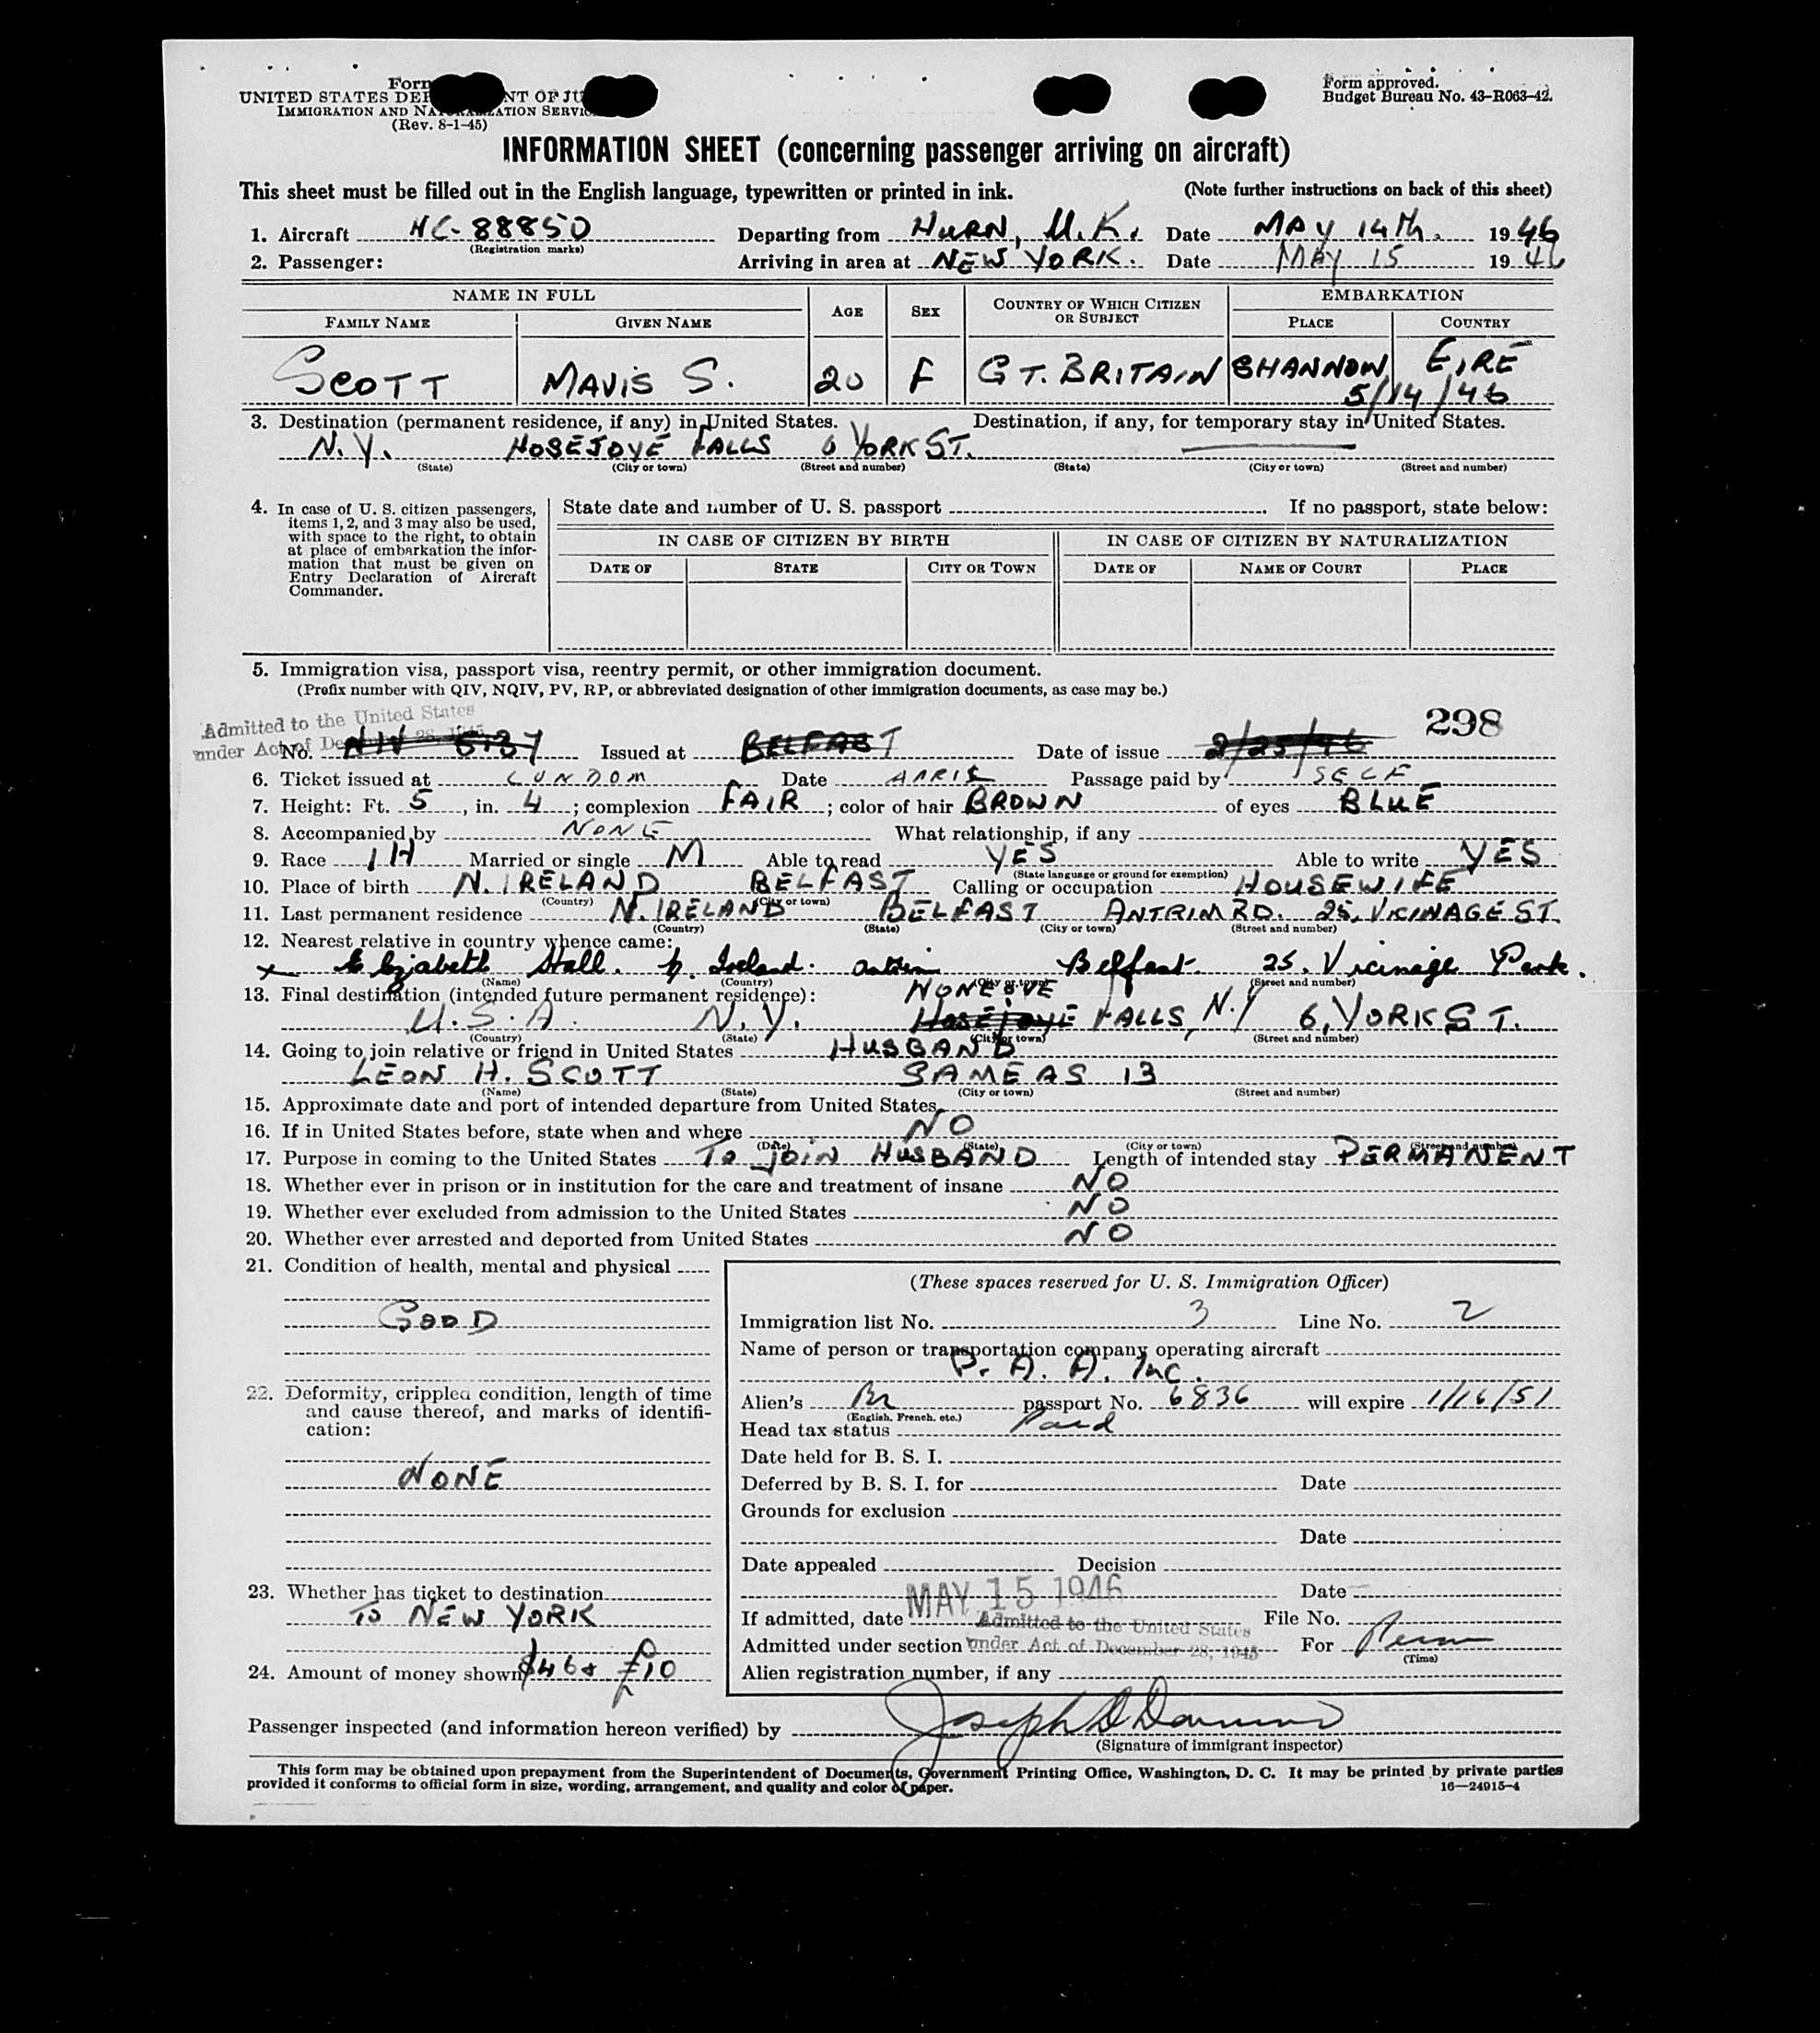 Form
UNITED STATES DEP NT OF JU
IMMIGRATION AND NATURALIZATION SERVIC
(Rev. 8-1-45)
Form approved.
Budget Bureau No. 43-R063-42.
INFORMATION SHEET (concerning passenger arriving on aircraft)
This sheet must be filled out in the English language, typewritten or printed in ink. (Note further instructions on back of this sheet)
1. Aircraft NC-88850 Departing from HURN, U.K. Date MAY 14th. 1946
(Registration marks)
2. Passenger: Arriving in area at NEW YORK. Date MAY 15 1946
NAME IN FULL AGE SEX COUNTRY OF WHICH CITIZEN OR SUBJECT EMBARKATION
FAMILY NAME GIVEN NAME PLACE COUNTRY
SCOTT MAVIS S. 20 F GT. BRITAIN SHANNON, EIRE
5/14/46
3. Destination (permanent residence, if any) in United States. Destination, if any, for temporary stay in United States.
N.Y. HOSEJOYE FALLS 6 YORK ST.
(State) (City or town) (Street and number) (State) (City or town) (Street and number)
4. In case of U. S. citizen passengers,
items 1, 2, and 3 may also be used,
with space to the right, to obtain
at place of embarkation the infor-
mation that must be given on
Entry Declaration of Aircraft
Commander.
State date and number of U. S. passport If no passport, state below:
IN CASE OF CITIZEN BY BIRTH IN CASE OF CITIZEN BY NATURALIZATION
DATE OF STATE CITY OR TOWN DATE OF NAME OF COURT PLACE
5. Immigration visa, passport visa, reentry permit, or other immigration document.
(Prefix number with QIV, NQIV, PV, RP, or abbreviated designation of other immigration documents, as case may be.)
298
Admitted to the United States
under Act of December 28, 1945
No. NIV 5137 Issued at BELFAST Date of issue 2/25/46
6. Ticket issued at LUNDOM Date APRIL Passage paid by SELF
7. Height: Ft. 5, in. 4; complexion FAIR; color of hair BROWN of eyes BLUE
8. Accompanied by NONE What relationship, if any
9. Race IH Married or single M Able to read YES Able to write YES
(State language or ground for exemption)
10. Place of birth N. IRELAND BELFAST Calling or occupation HOUSEWIFE
(Country) (City or town)
11. Last permanent residence N. IRELAND BELFAST ANTRIM RD. 25, VICINAGE ST.
(Country) (State) (City or town) (Street and number)
12. Nearest relative in country whence came:
x Elizabeth Hall. N. Ireland. Antrim Belfast. 25. Vicinage Park.
(Name) (Country) (City or town) (Street and number)
13. Final destination (intended future permanent residence): HONEOYE
U.S.A. N.Y. HOSEJOYE FALLS, N.Y 6, YORK ST.
(Country) (State) (City or town) (Street and number)
14. Going to join relative or friend in United States HUSBAND
LEON H. SCOTT SAME AS 13
(Name) (State) (City or town) (Street and number)
15. Approximate date and port of intended departure from United States
16. If in United States before, state when and where NO
(Date) (State) (City or town) (Street and number)
17. Purpose in coming to the United States TO JOIN HUSBAND Length of intended stay PERMANENT
18. Whether ever in prison or in institution for the care and treatment of insane NO
19. Whether ever excluded from admission to the United States NO
20. Whether ever arrested and deported from United States NO
21. Condition of health, mental and physical
GOOD
22. Deformity, crippled condition, length of time
and cause thereof, and marks of identifi-
cation:
NONE
23. Whether has ticket to destination
TO NEW YORK
24. Amount of money shown $46 & £10
(These spaces reserved for U. S. Immigration Officer)
Immigration list No. 3 Line No. 2
Name of person or transportation company operating aircraft
P. A. A. Inc.
Alien's Br passport No. 6836 will expire 1/16/51
(English, French, etc.)
Head tax status Paid
Date held for B. S. I.
Deferred by B. S. I. for Date
Grounds for exclusion
Date
Date appealed Decision
Date
If admitted, date MAY 15 1946 File No.
Admitted to the United States
Admitted under section under Act of December 28, 1945 For Perm
(Time)
Alien registration number, if any
Passenger inspected (and information hereon verified) by Joseph D
(Signature of immigrant inspector)
This form may be obtained upon prepayment from the Superintendent of Documents, Government Printing Office, Washington, D. C. It may be printed by private parties
provided it conforms to official form in size, wording, arrangement, and quality and color of paper. 16—24915-4